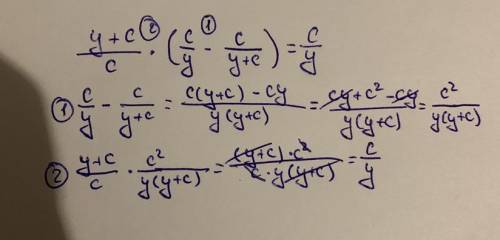 ② ①
(y+c)/c · (c/y - c/(y+c)) = c/y
① c/y - c/(y+c) = (c(y+c) - cy)/(y(y+c)) = (cy + c² - cy)/(y(y+c)) = c²/(y(y+c))
② (y+c)/c · c²/(y(y+c)) = ((y+c)·c²)/(c·y(y+c)) = c/y